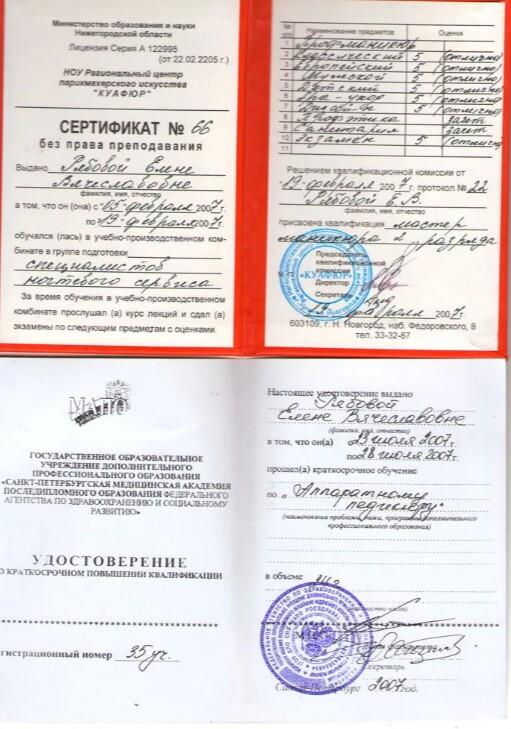 Министерство образования и науки
Нижегородской области
Лицензия Серия А 122995
(от 22.02.2205 г.)
НОУ Региональный центр
парикмахерского искусства
"КУАФЮР"
СЕРТИФИКАТ № 66
без права преподавания
Выдано Рябовой Елене
Вячеславовне
фамилия, имя, отчество
в том, что он (она) с 05 февраля 2007г.
по 19 февраля 2007г.
обучался (лась) в учебно-производственном ком-
бинате в группе подготовки
специалистов
ногтевого сервиса
За время обучения в учебно-производственном
комбинате прослушал (а) курс лекций и сдал (а)
экзамены по следующим предметам с оценками.
Наименование предметов Оценка
1
2 Классический 5 (отлично)
3 Европейский 5 (отлично)
4 Мужской 5 (отлично)
5 Детский 5 (отлично)
6 Спа-уход 5 (отлично)
7 Дизайн 5 (отлично)
8 зачет
9 Санитария зачет
10 Экзамен 5 (отлично)
11
Решением квалификационной комиссии от
19 февраля 2007г. протокол № 22
Рябовой Е.В.
фамилия, имя, отчество
присвоена квалификация мастер
маникюра 2 разряда
Председатель
квалификационной
комиссии
Директор
Секретарь
«КУАФЮР»
19 февраля 2007г.
603109, г. Н. Новгород, наб. Федоровского, 8
тел. 33-32-87
ГОСУДАРСТВЕННОЕ ОБРАЗОВАТЕЛЬНОЕ
УЧРЕЖДЕНИЕ ДОПОЛНИТЕЛЬНОГО
ПРОФЕССИОНАЛЬНОГО ОБРАЗОВАНИЯ
«САНКТ-ПЕТЕРБУРГСКАЯ МЕДИЦИНСКАЯ АКАДЕМИЯ
ПОСЛЕДИПЛОМНОГО ОБРАЗОВАНИЯ ФЕДЕРАЛЬНОГО
АГЕНТСТВА ПО ЗДРАВООХРАНЕНИЮ И СОЦИАЛЬНОМУ
РАЗВИТИЮ»
УДОСТОВЕРЕНИЕ
О КРАТКОСРОЧНОМ ПОВЫШЕНИИ КВАЛИФИКАЦИИ
егистрационный номер 35уч.
Настоящее удостоверение выдано
Рябовой
Елене Вячеславовне
(фамилия, имя, отчество)
в том, что он(а) с 23 июля 2007г.
по 28 июля 2007г.
прошел(а) краткосрочное обучение
по „Аппаратному
педикюру"
(наименование проблемы, темы, программы дополнительного
профессионального образования)
в объеме
Секретарь
Санкт-Петербург 2007год.